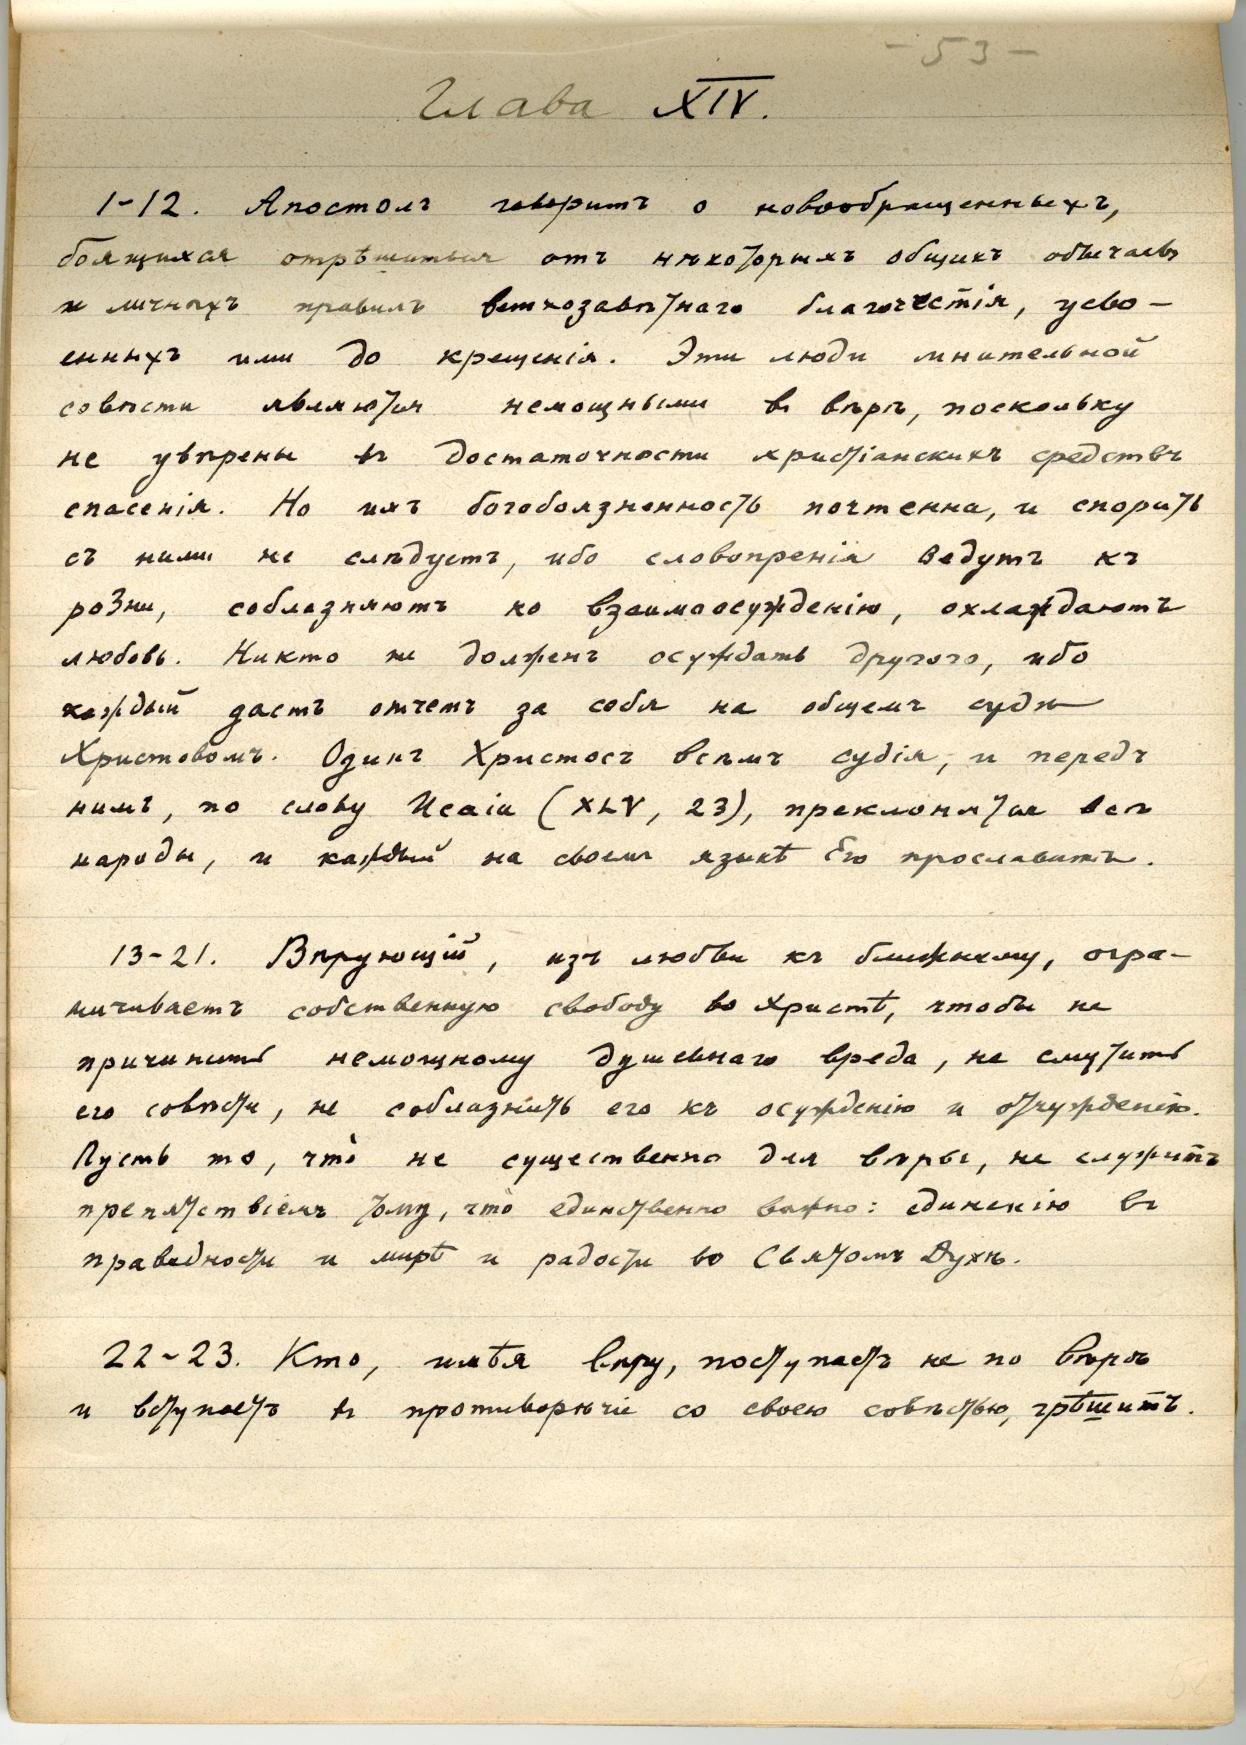 - 53 -
Глава XIV.
1-12. Апостолъ говоритъ о новообращенныхъ,
боящихся отрѣшиться отъ нѣкоторыхъ общихъ обычаевъ
и личныхъ правилъ ветхозавѣтнаго благочестія, усво-
енныхъ ими до крещенія. Эти люди мнительной
совѣсти являются немощными въ вѣрѣ, поскольку
не увѣрены въ достаточности христіанскихъ средствъ
спасенія. Но ихъ богобоязненность почтенна, и спорить
съ ними не слѣдуетъ, ибо словопренія ведутъ къ
розни, соблазняютъ ко взаимоосужденію, охлаждаютъ
любовь. Никто не долженъ осуждать другого, ибо
каждый дастъ отчетъ за себя на общемъ судѣ
Христовомъ. Одинъ Христосъ всѣмъ судія, и передъ
нимъ, по слову Исаіи (XLV, 23), преклонятся всѣ
народы, и каждый на своемъ языкѣ Его прославитъ.
13-21. Вѣрующій, изъ любви къ ближнему, огра-
ничиваетъ собственную свободу во Христѣ, чтобы не
причинить немощному душевнаго вреда, не смутить
его совѣсти, не соблазнить его къ осужденію и отчужденію.
Пусть то, что̀ не существенно для вѣры, не служитъ
препятствіемъ тому, что̀ единственно важно: единенію въ
праведности и мирѣ и радости во Святомъ Духѣ.
22-23. Кто, имѣя вѣру, поступаетъ не по вѣрѣ
и вступаетъ въ противорѣчіе со своею совѣстью, грѣшитъ.